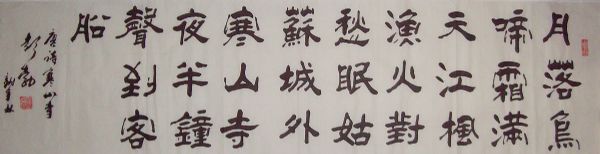 月落烏
啼霜滿
天江楓
漁火對
愁眠姑
蘇城外
寒山寺
夜半鐘
聲到客
船
唐詩寒山寺